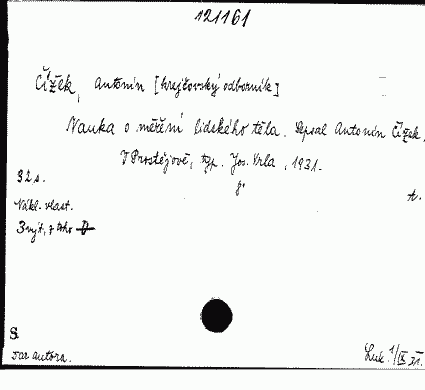 121161
Čížek, Antonín [krejčovský odborník]
Nauka o měření lidského těla. Sepsal Antonín Čížek.
V Prostějově, typ. Jos. Vrla, 1931.
32 s.
8°.
Nákl. vlast.
S.
Dar autora.
Luk. 1/IX 31.